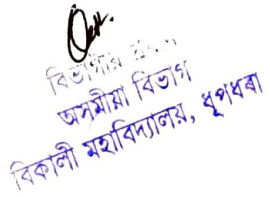 বিভাগীয়
অসমীয়া বিভাগ
বিকালী মহাবিদ্যালয়, ধূপধৰা